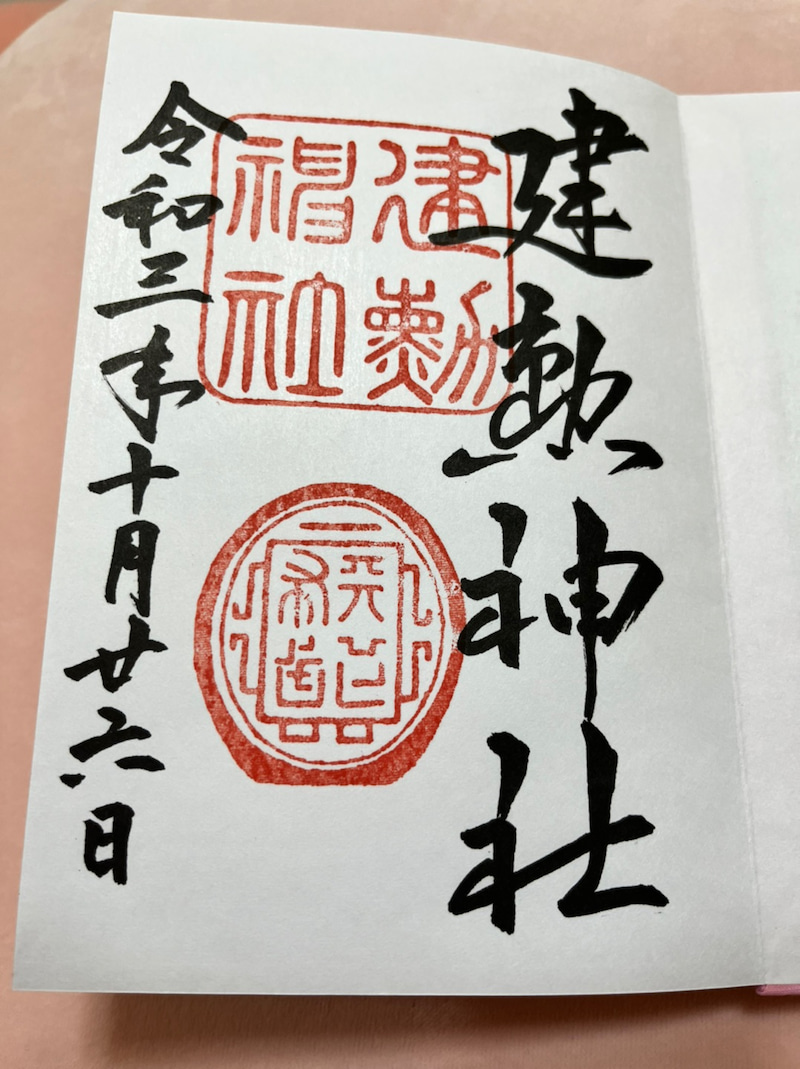 建勲神社
建勲
神社
令和三年十月廿六日